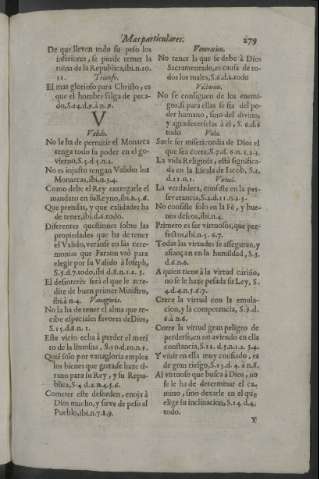 Mas particulares. 279
De que lleven todo su peso los
inferiores, se puede temer la
ruina de la Republica, ibi. n. 10.
11. Triunfo.
El mas glorioso para Christo, es
que el hombre salga de peca-
do, S. 4. d. 9. à n. 9.
V
Valido.
No le ha de permitir el Monarca
tenga todo su poder en el go-
vierno, S. 5. d. 5. n. 2.
No es injusto tengan Valido los
Monarcas, ibi. n. 3. 4.
Como debe el Rey entregarle el
mandato en su Reyno, ibi. n. 5. 6.
Que prendas, y que calidades ha
de tener, ibi. d. 6. todo.
Diferentes questiones sobre las
propriedades que ha de tener
el Valido, veanse en las cere-
monias que Faraon vsò para
elegir por su Valido à Joseph,
S. 5. d. 7. todo, ibi d. 8. n. 1. 2. 3.
El desinterès serà el que le acre-
dite de buen primer Ministro,
ibi. à n. 4. Vanagloria.
No la ha de tener el alma que re-
cibe especiales favores de Dios,
S. 15. d. 8. n. 1.
Este vicio echa à perder el meri-
to de la limosna, S. 10. d. 10. n. 5.
Quai solo por vanagloria emplea
los bienes que gasta se hace ti-
rano para su Rey, y su Repu-
blica, S. 4. d. 2. n. 4. 5. 6.
Cometer este desorden, enoja à
Dios mucho, y sirve de peso al
Pueblo, ibi. n. 7. 8. 9.
Veneracion.
No tener la que se debe à Dios
Sacramentado, es causa de to-
dos los males, S. 6. d. 2. todo
Victoria.
No se consiguen de los enemi-
gos, si para ellas se fia del po-
der humano, sino del divino,
y agradecerselas à èl, S. 6. d. 1.
todo Vida.
Suele ser misericordia de Dios el
que sea corta, S. 7. d. 6. n. 1. 2. 4.
La vida Religiosa, està significa-
da en la Escala de Jacob, S. 2.
d. 12. n. 1. Virtud.
La verdadera, consiste en la per-
severancia, S. 2. d. 11. n. 2. 3.
No consiste solo en la Fè, y bue-
nos deseos, ibi. n. 4.
Primero es ser virtuoso, que per-
fecto, ibi. n. 5. 6. 7.
Todas las virtudes se asseguran, y
afiançan en la humildad, S. 3.
d. 6. n. 6.
A quien tiene à la virtud cariño,
no se le hace pesada su Ley, S.
4. d. 4. n. 5. 6. 7.
Crece la virtud con la emula-
cion, y la competencia, S. 3. d.
8. à n. 6.
Corre la virtud gran peligro de
perderse, con no aviendo en ella
constancia, S. 12. d. 5. n. 1. 2. 3. 4.
Y vivir en ella muy confiado, es
de gran riesgo, S. 15. d. 4. à n. 8.
Al virtuoso que busca à Dios, no
se le ha de determinar el ca-
mino, sino dexarle en el que
elige su inclinacion, S. 14. d. 4.
todo.
Y